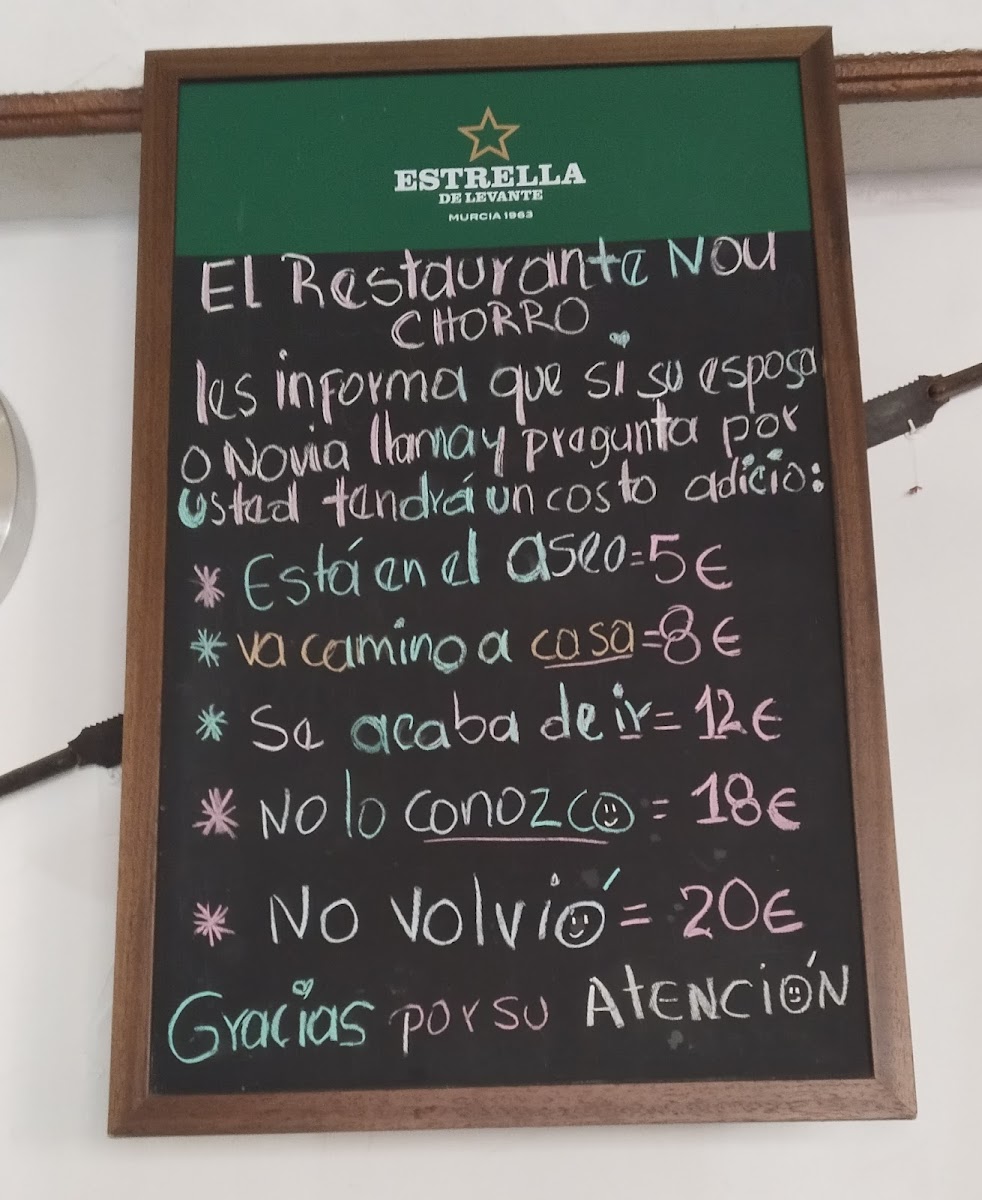 ESTRELLA
DE LEVANTE
MURCIA 1963
El Restaurante Nou
CHORRO
les informa que si su esposa
o Novia llama y pregunta por
usted tendrá un costo adicio:
* Está en el aseo = 5€
* va camino a casa = 8€
* Se acaba de ir = 12€
* No lo conozco = 18€
* No volvió = 20€
Gracias por su ATENCIÓN